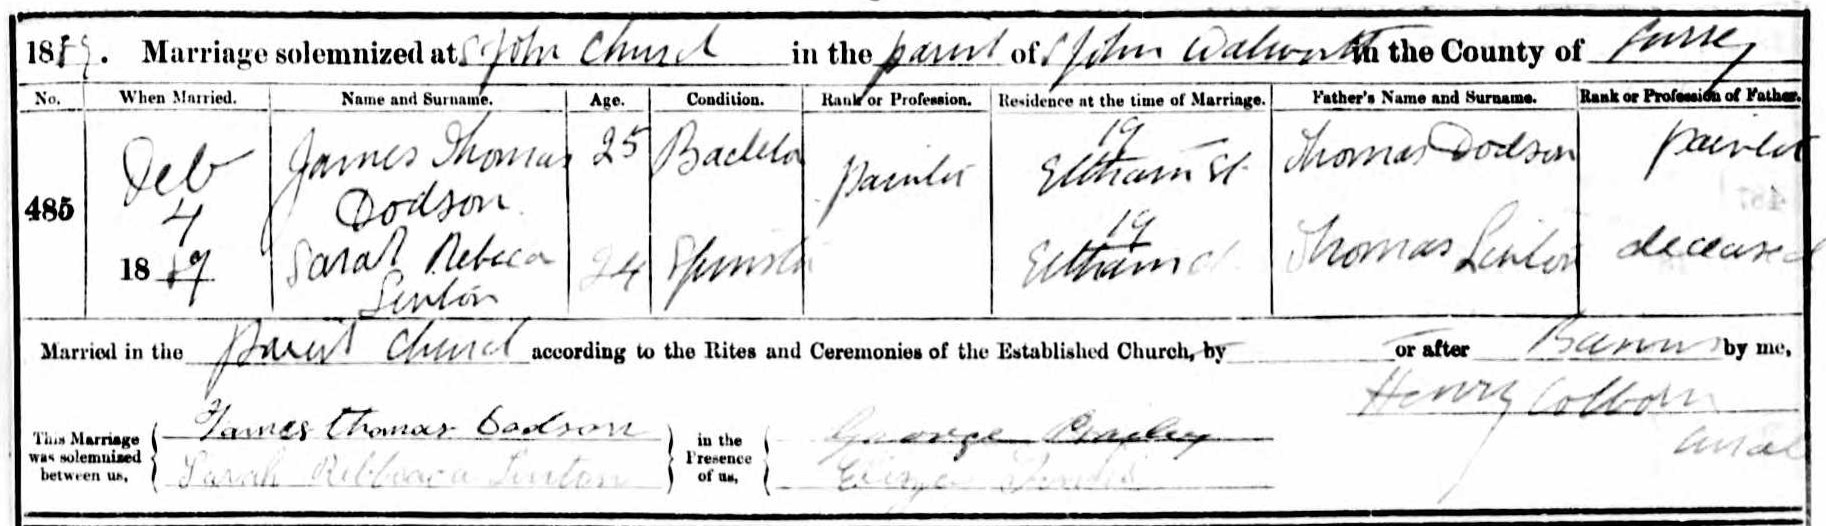 1889. Marriage solemnized at S John Church in the parish of S John Walworth in the County of Surrey
No. When Married. Name and Surname. Age. Condition. Rank or Profession. Residence at the time of Marriage. Father's Name and Surname. Rank or Profession of Father.
485 Feb 4 1889 James Thomas Dodson 25 Bachelor painter 19 Eltham St Thomas Dodson painter
Sarah Rebeca Linton 24 Spinster 19 Eltham St Thomas Linton deceased
Married in the parish Church according to the Rites and Ceremonies of the Established Church, by or after Banns by me,
Henry Colborn
This Marriage was solemnized between us, James Thomas Dodson in the Presence of us, George
Sarah Rebbeaca Linton Eliza